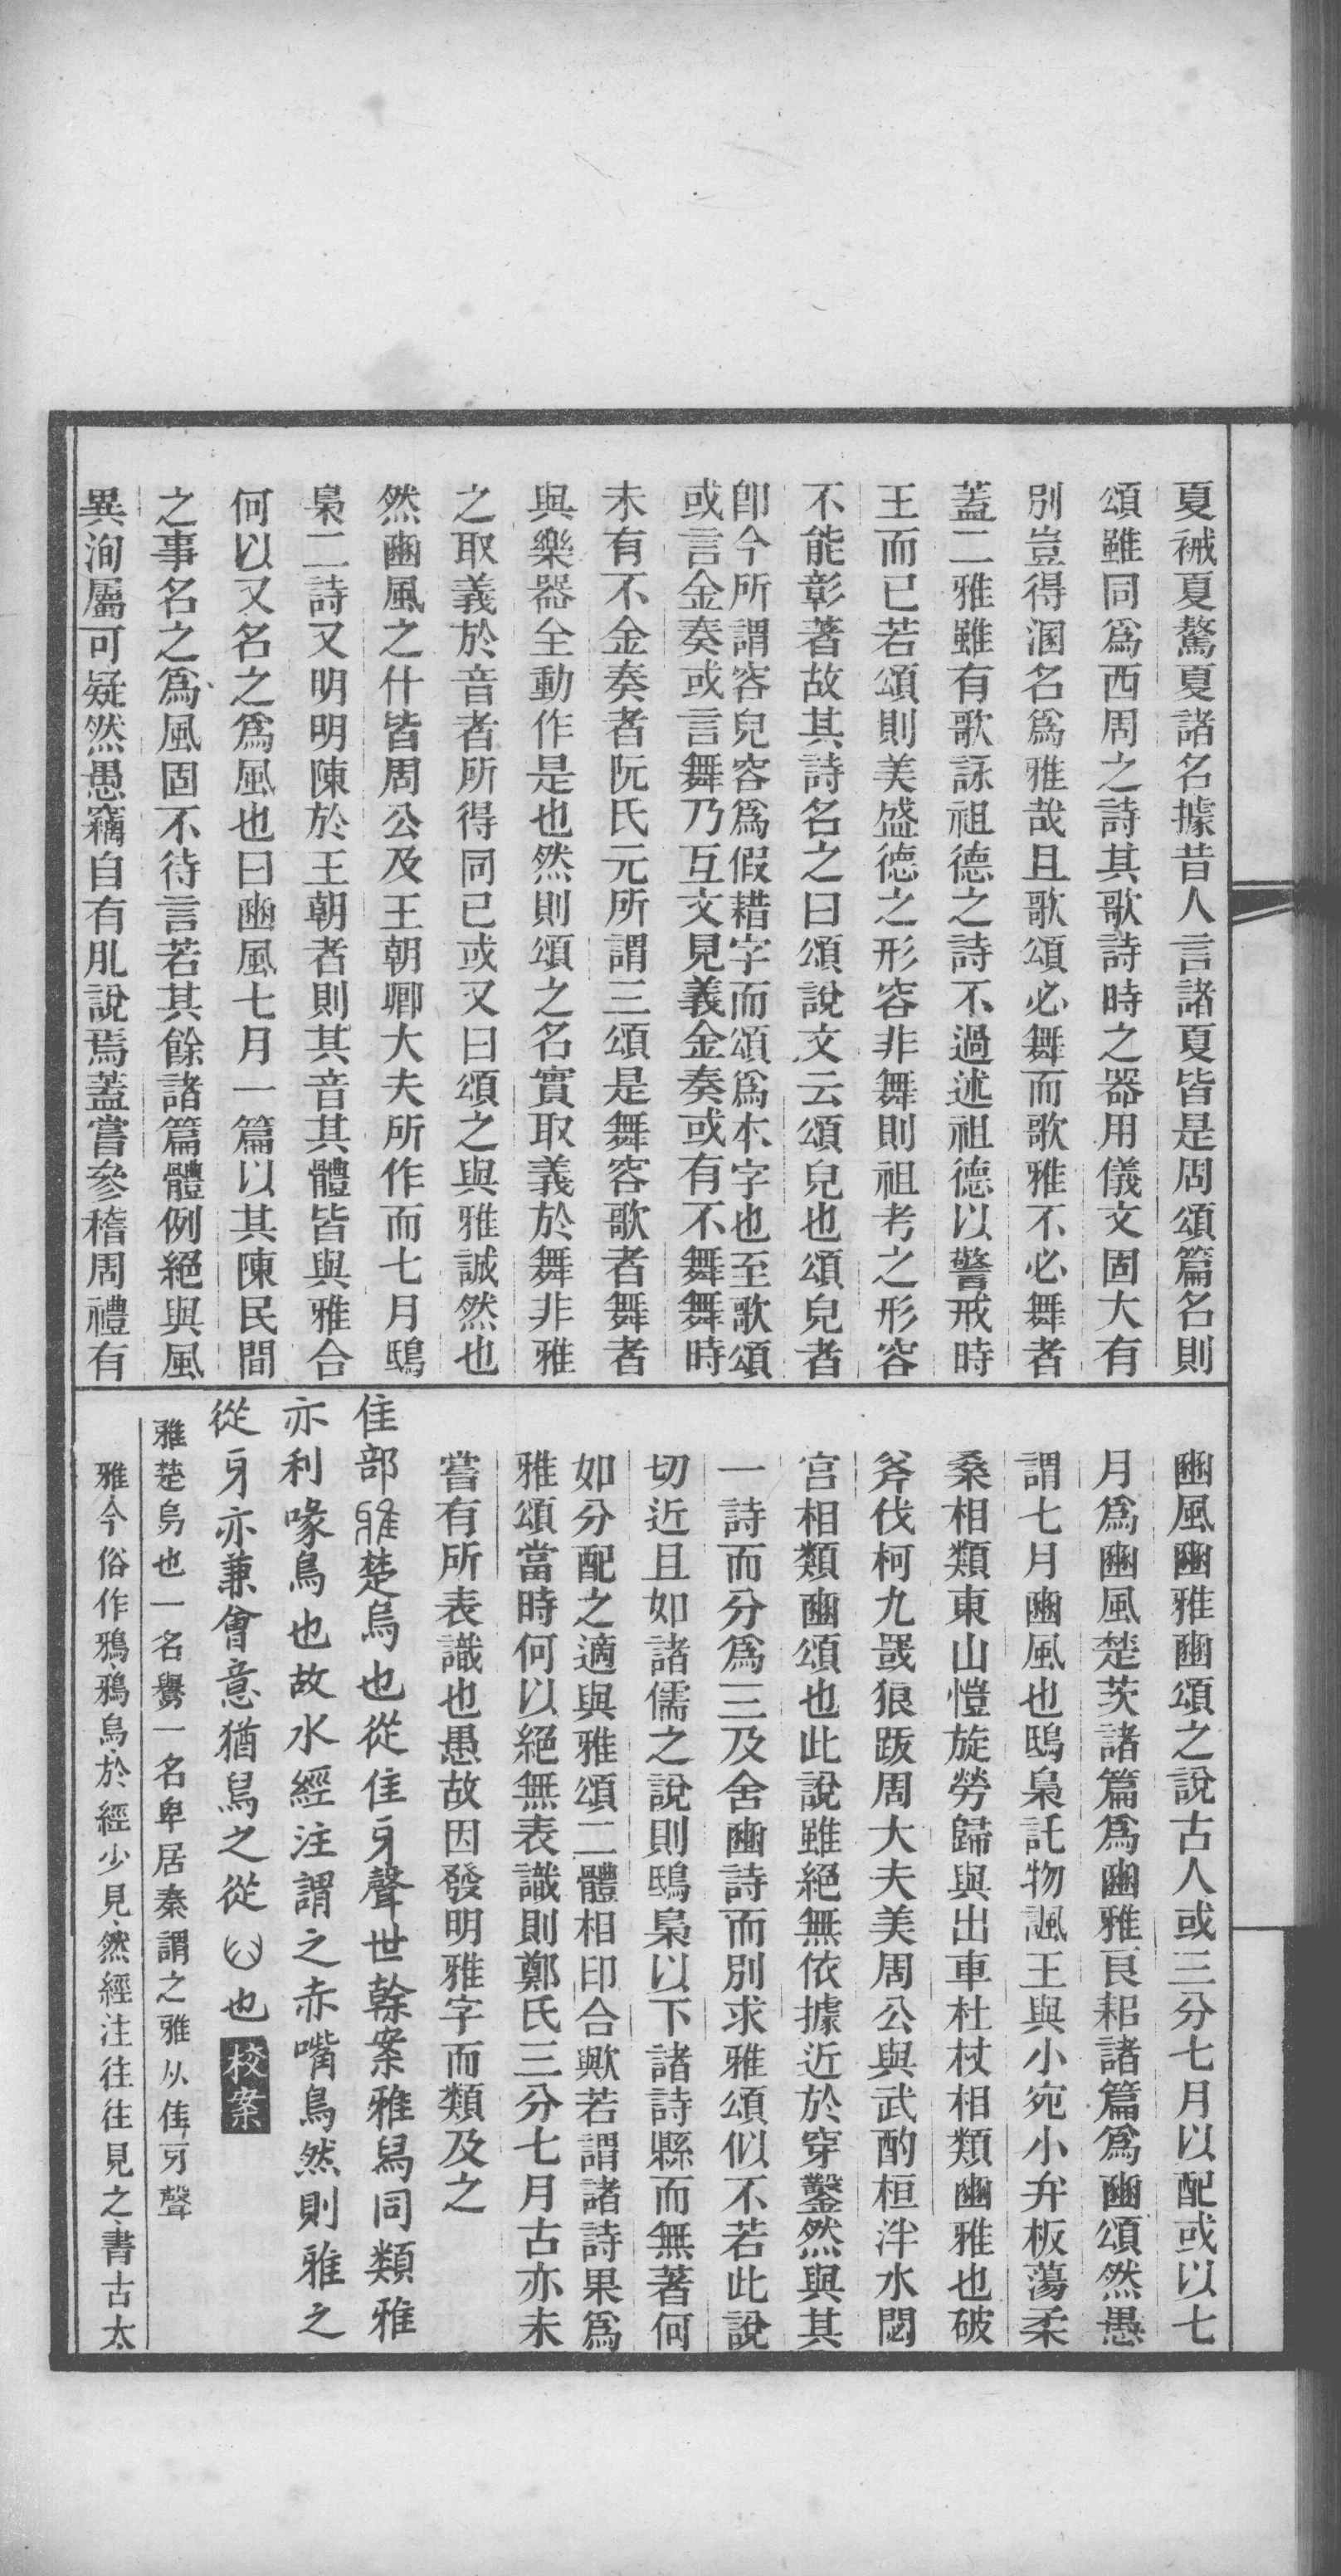 夏祴夏驁夏諸名據昔人言諸夏皆是周頌篇名則
頌雖同爲西周之詩其歌詩時之器用儀文固大有
別豈得溷名爲雅哉且歌頌必舞而歌雅不必舞者
蓋二雅雖有歌詠祖德之詩不過述祖德以警戒時
王而已若頌則美盛德之形容非舞則祖考之形容
不能彰著故其詩名之曰頌說文云頌皃也頌皃者
卽今所謂容皃容爲假耤字而頌爲本字也至歌頌
或言金奏或言舞乃互文見義金奏或有不舞舞時
未有不金奏者阮氏元所謂三頌是舞容歌者舞者
與樂器全動作是也然則頌之名實取義於舞非雅
之取義於音者所得同已或又曰頌之與雅誠然也
然豳風之什皆周公及王朝卿大夫所作而七月鴟
梟二詩又明明陳於王朝者則其音其體皆與雅合
何以又名之爲風也曰豳風七月一篇以其陳民間
之事名之爲風固不待言若其餘諸篇體例絕與風
異洵屬可疑然愚竊自有肊說焉蓋嘗參稽周禮有
豳風豳雅豳頌之說古人或三分七月以配或以七
月爲豳風楚茨諸篇爲豳雅良耜諸篇爲豳頌然愚
謂七月豳風也鴟梟託物諷王與小宛小弁板蕩柔
桑相類東山愷旋勞歸與出車杕杜相類豳雅也破
斧伐柯九罭狼跋周大夫美周公與武酌桓泮水閟
宮相類豳頌也此說雖絕無依據近於穿鑿然與其
一詩而分爲三及舍豳詩而別求雅頌似不若此說
切近且如諸儒之說則鴟梟以下諸詩縣而無著何
如分配之適與雅頌二體相印合歟若謂諸詩果爲
雅頌當時何以絕無表識則鄭氏三分七月古亦未
嘗有所表識也愚故因發明雅字而類及之
隹部雅楚烏也從隹牙聲世榦案雅舄同類雅
亦利喙鳥也故水經注謂之赤嘴鳥然則雅之
從牙亦兼會意猶舄之從也校案
雅楚烏也一名鸒一名卑居秦謂之雅从隹牙聲
雅今俗作鴉鴉鳥於經少見然經注往往見之書古太